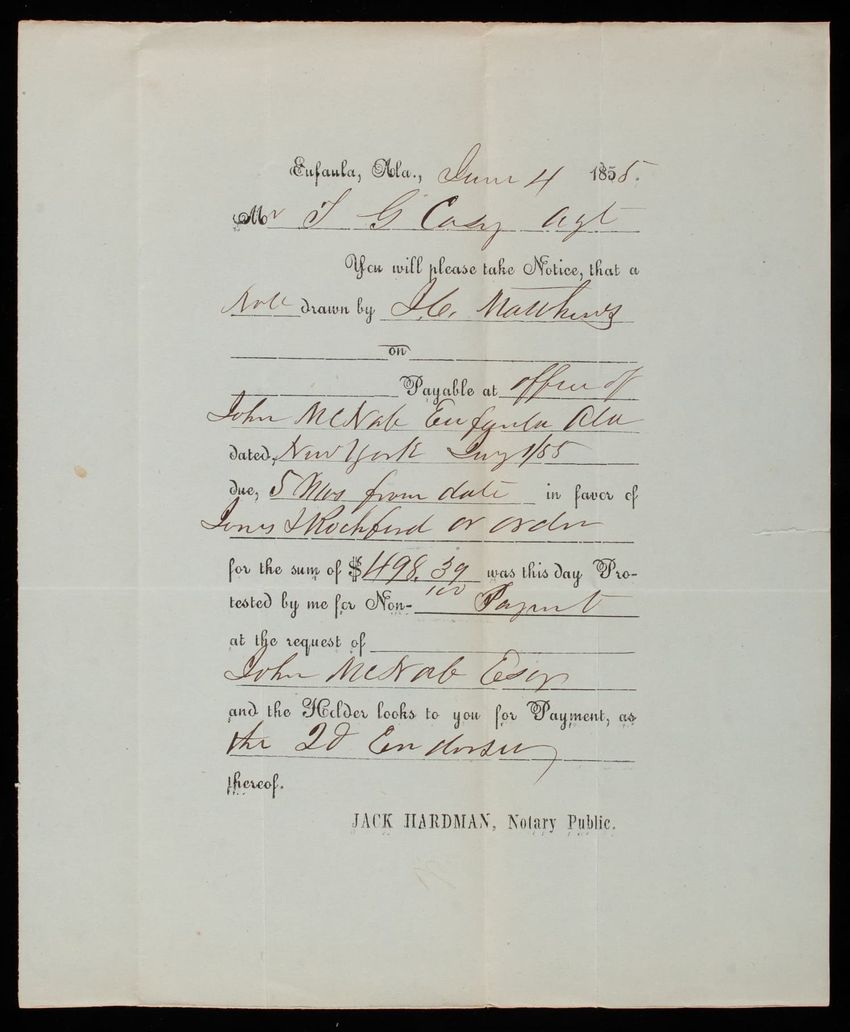 Eufaula, Ala., June 4 1855.
Mr T G Casy agt
You will please take Notice, that a
Note drawn by J.C. Matthews
on
Payable at office of
John McNab Eufaula Ala
dated, New York Jany 1/55
due, 5 Mos from date in favor of
Jones & Rockford or order
for the sum of $498.39/100 was this day Pro-
tested by me for Non- Paymnt
at the request of
John McNab Esqr
and the Holder looks to you for Payment, as
the 2d Endorser
thereof.
JACK HARDMAN, Notary Public.